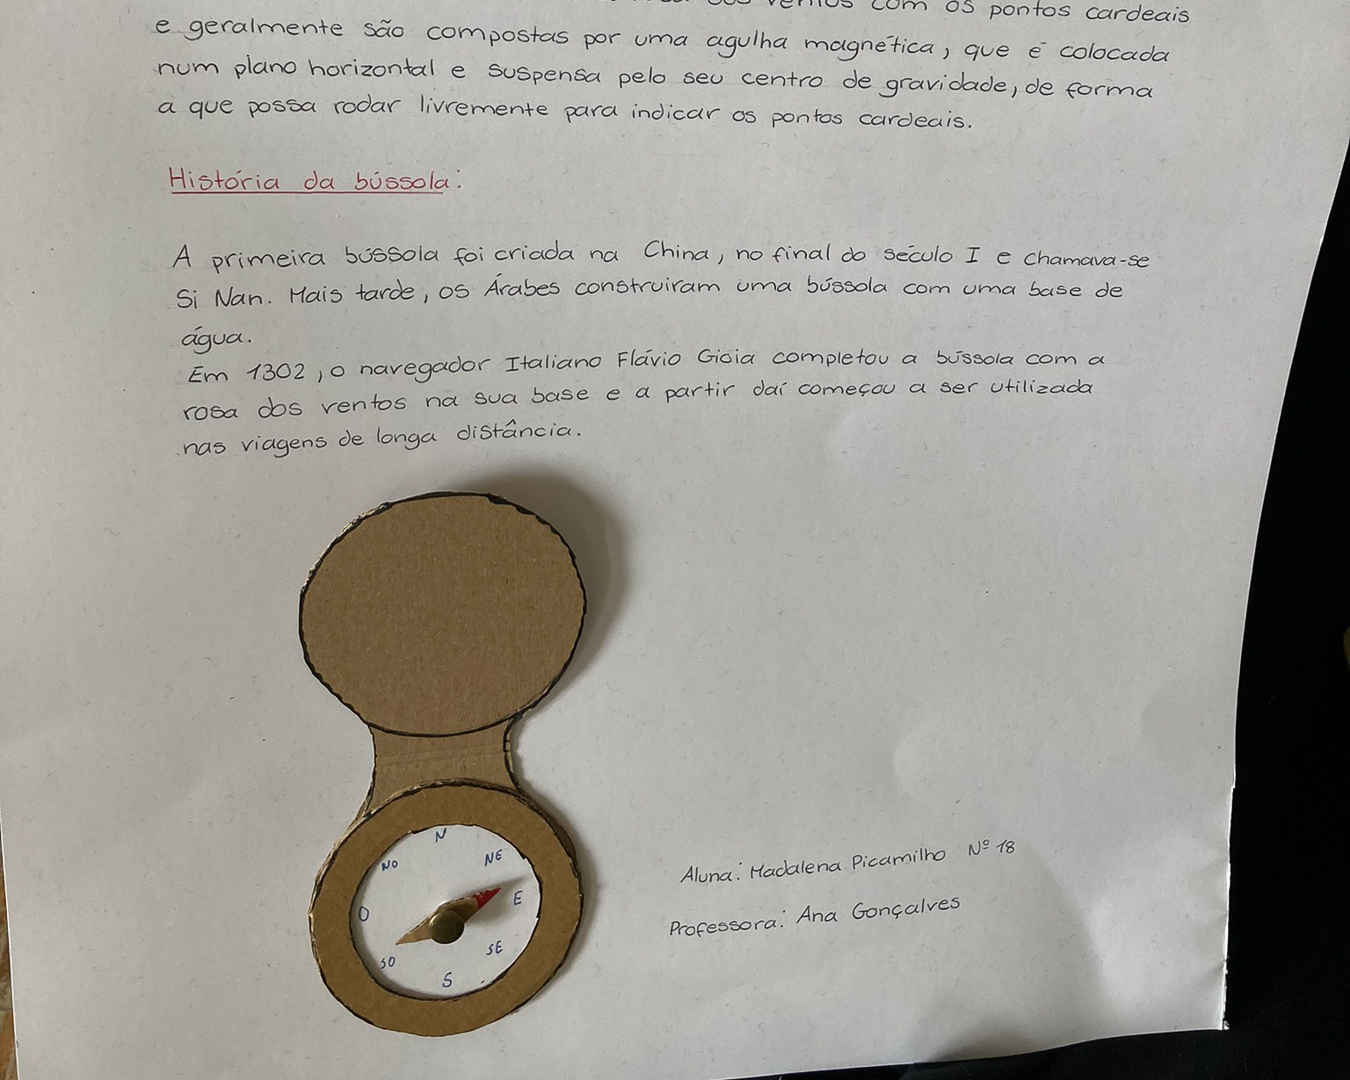 ventos com os pontos cardeais
e geralmente são compostas por uma agulha magnética, que é colocada
num plano horizontal e suspensa pelo seu centro de gravidade, de forma
a que possa rodar livremente para indicar os pontos cardeais.
História da bússola:
A primeira bússola foi criada na China, no final do século I e chamava-se
Si Nan. Mais tarde, os Árabes construiram uma bússola com uma base de
água.
Em 1302, o navegador Italiano Flávio Gioia completou a bússola com a
rosa dos ventos na sua base e a partir daí começou a ser utilizada
nas viagens de longa distância.
N
NO
NE
O
E
SO
SE
S
Aluna: Madalena Picamilho Nº 18
Professora: Ana Gonçalves